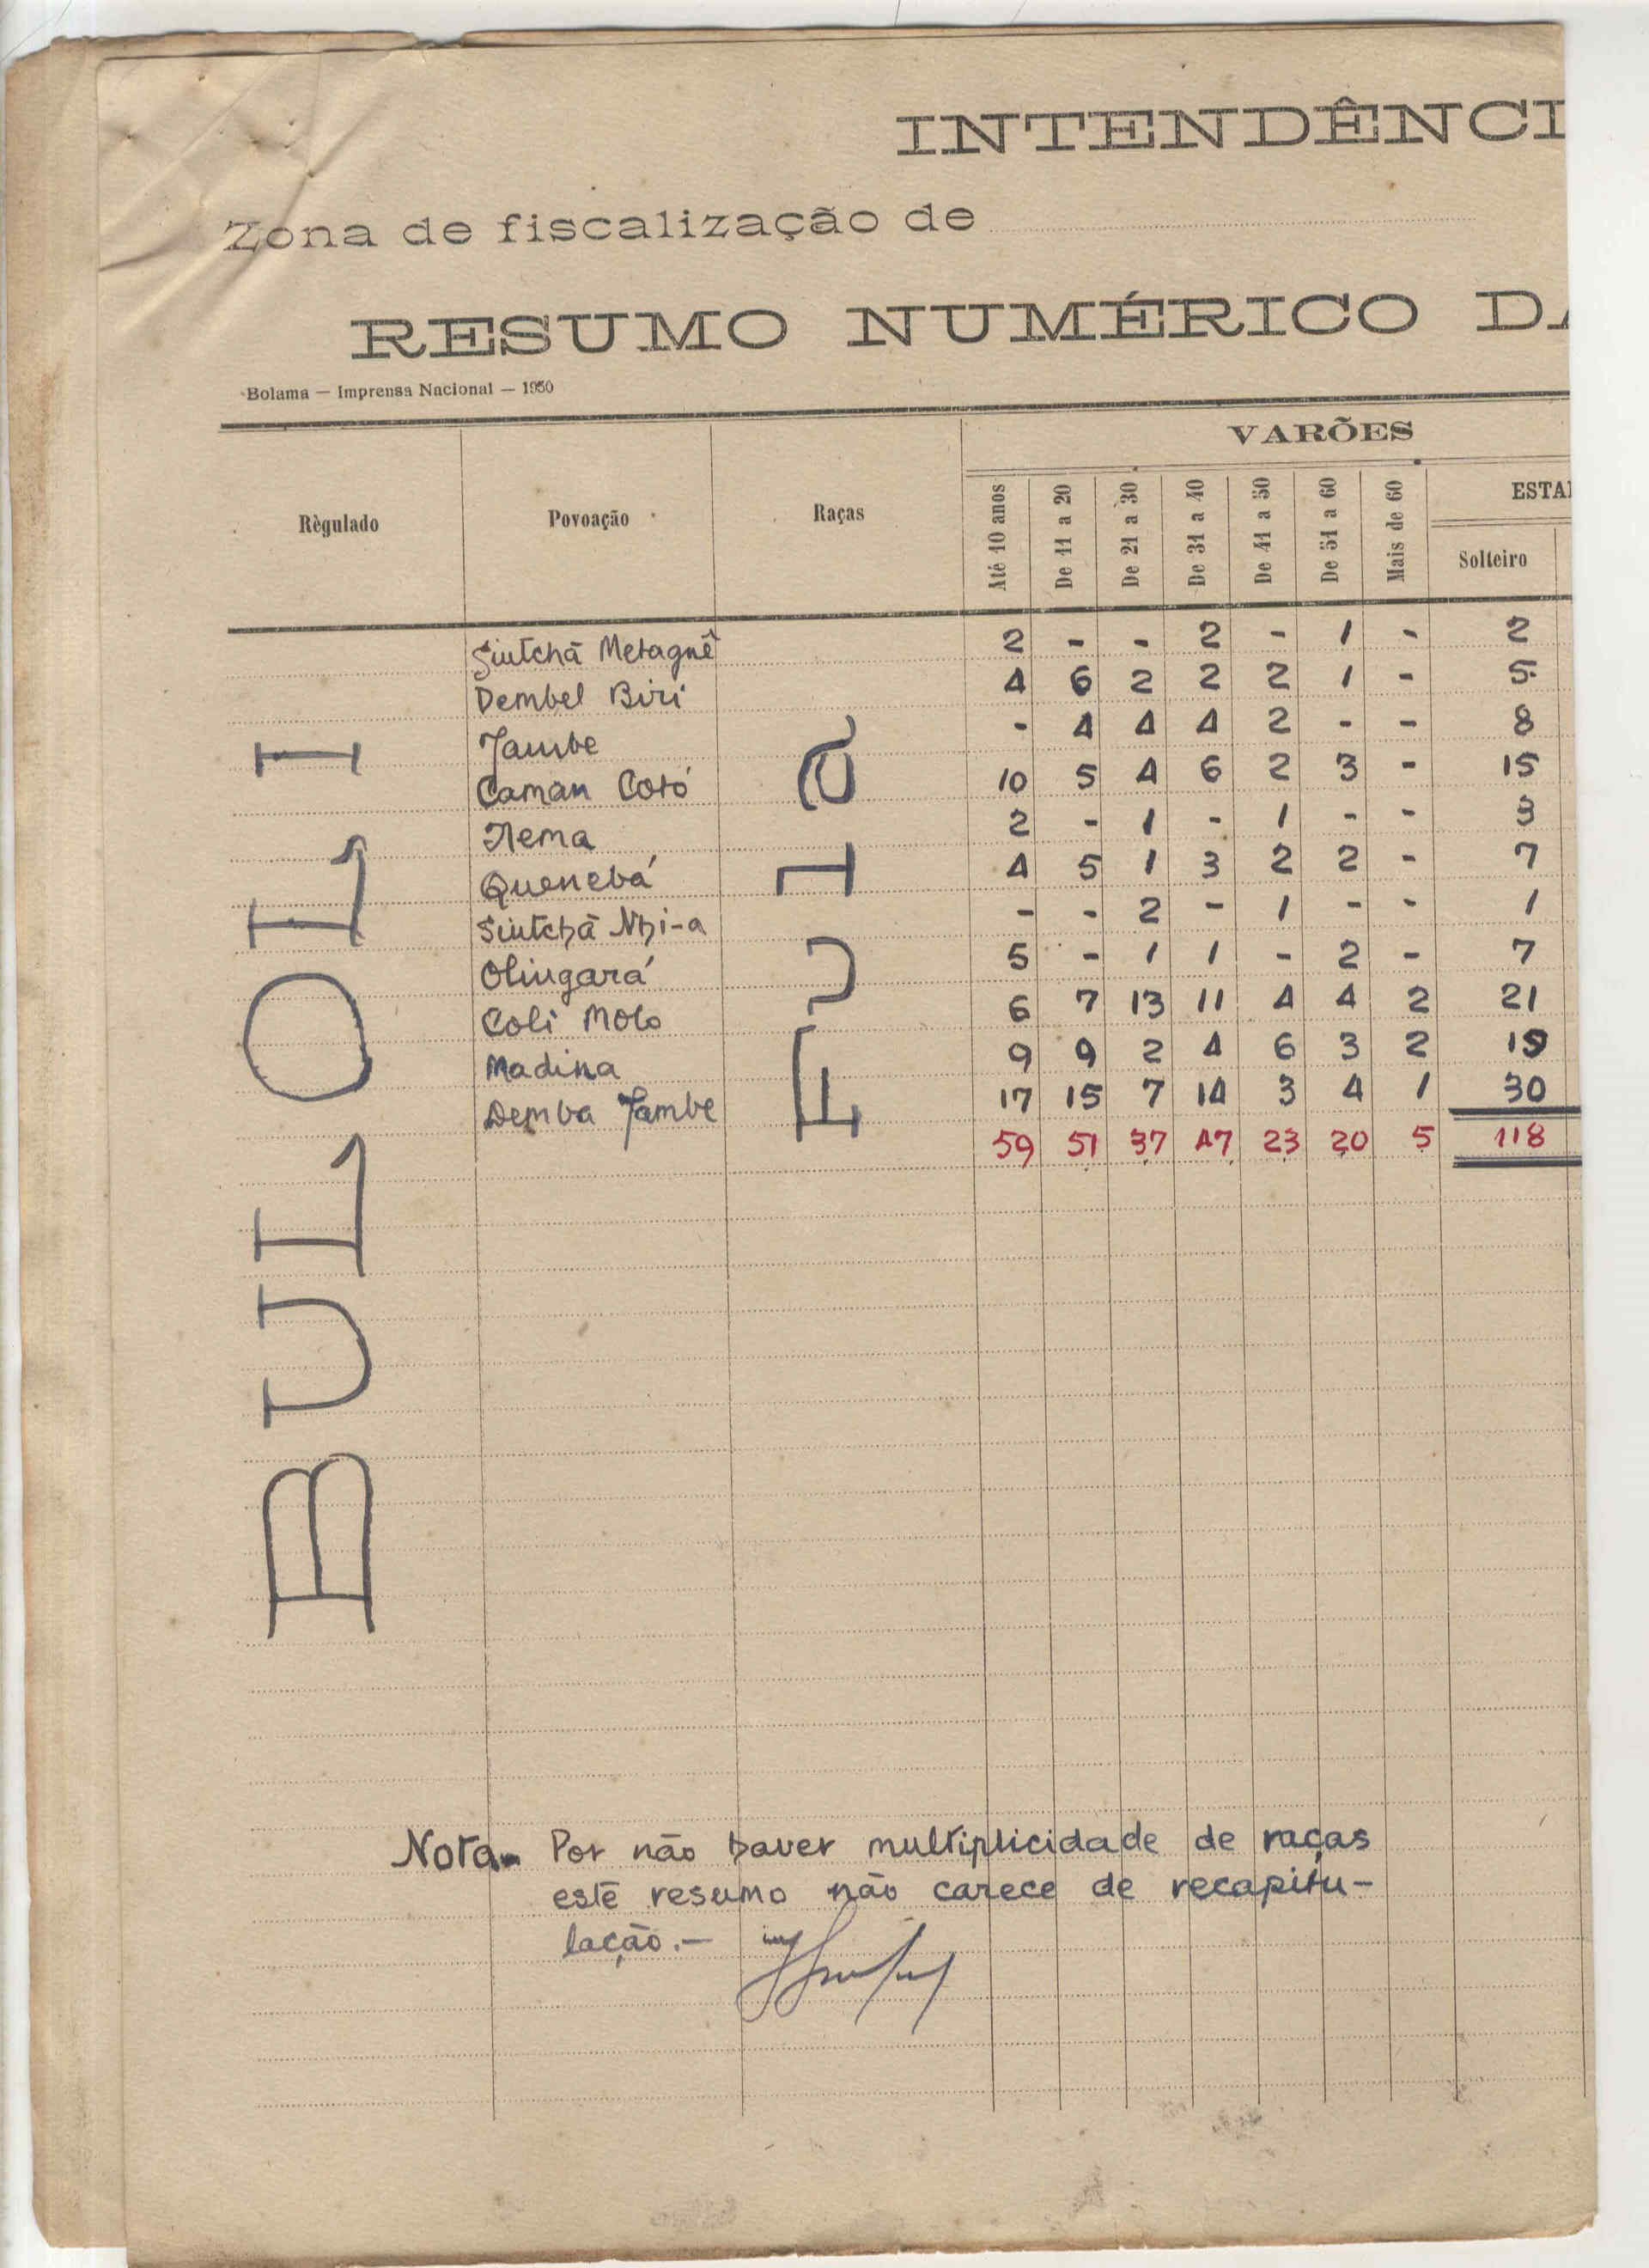 INTENDÊNCI
Zona de fiscalização de
RESUMO NUMÉRICO DA
Bolama — Imprensa Nacional — 1950
Règulado Povoação Raças VARÕES
Até 10 anos De 11 a 20 De 21 a 30 De 31 a 40 De 41 a 50 De 51 a 60 Mais de 60 ESTA
Solteiro
BUIOLI
Fula
Siutchã Metagnê 2 - - 2 - 1 - 2
Dembel Biri 4 6 2 2 2 1 - 5
Jambe - 4 4 4 2 - - 8
Caman Cotó 10 5 4 6 2 3 - 15
Nema 2 - 1 - 1 - - 3
Quenebá 4 5 1 3 2 2 - 7
Siutchã Nhi-a - - 2 - 1 - - 1
Olingará 5 - 1 1 - 2 - 7
Coli Molo 6 7 13 11 4 4 2 21
Madina 9 9 2 4 6 3 2 19
Demba Jambe 17 15 7 14 3 4 1 30
59 51 37 47 23 20 5 118
Nota - Por não haver multiplicidade de raças
este resumo não carece de recapitu-
lação.-